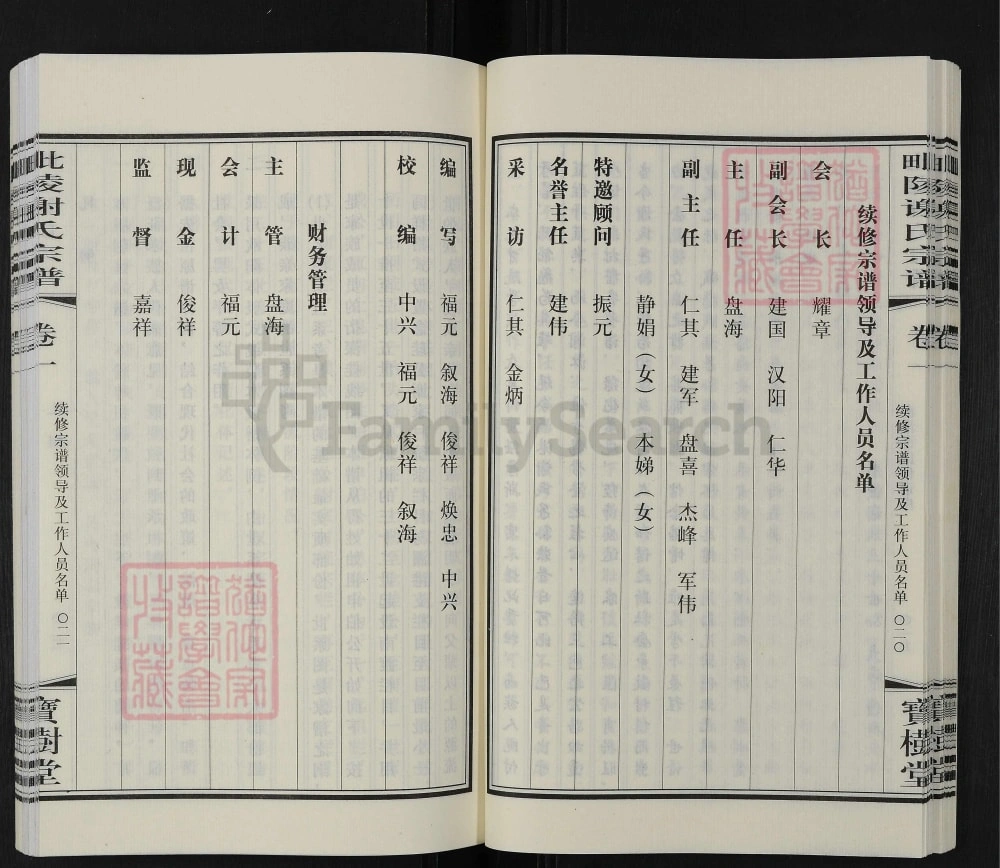 毗陵谢氏宗谱 卷一 续修宗谱领导及工作人员名单 〇二〇 寶樹堂
续修宗谱领导及工作人员名单
会长 耀章
副会长 建国 汉阳 仁华
主任 盘海
副主任 仁其 建军 盘喜 杰峰 军伟
静娟（女） 本娣（女）
特邀顾问 振元
名誉主任 建伟
采访 仁其 金炳
编写 福元 叙海 俊祥 焕忠 中兴
校编 中兴 福元 俊祥 叙海
财务管理
主管 盘海
会计 福元
现金 俊祥
监督 嘉祥
毗陵谢氏宗谱 卷一 续修宗谱领导及工作人员名单 〇二一 寶樹堂
FamilySearch